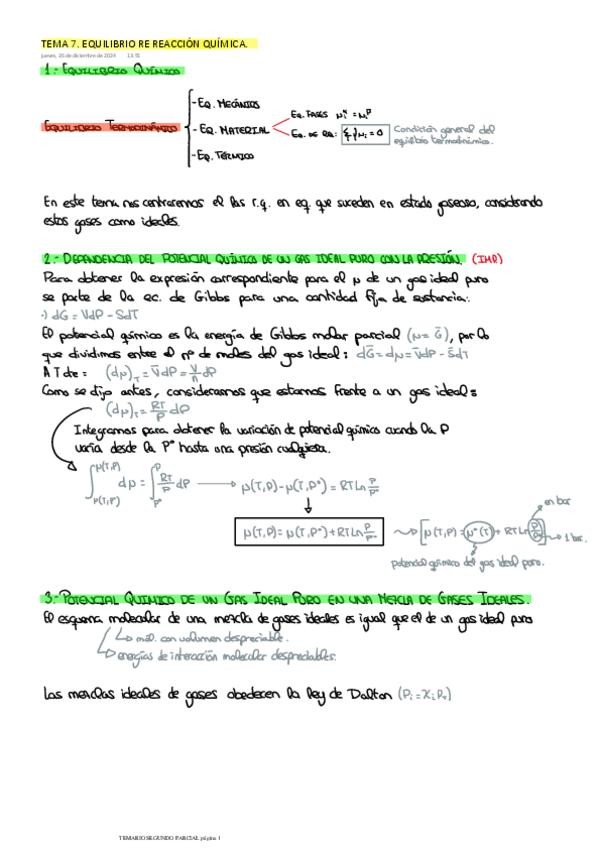 TEMA 7. EQUILIBRIO RE REACCIÓN QUÍMICA.
jueves, 26 de diciembre de 2024
1.- EQUILIBRIO QUÍMICO
- EQ. MECÁNICO
EQUILIBRIO TERMODINÁMICO - EQ. MATERIAL
EQ. FASES μᵢᵅ = μᵢᵝ
EQ. DE RQ: Σνᵢμᵢ = 0 Condición general del
equilibrio termodinámico.
- EQ. TÉRMICO
En este tema nos centraremos el las r.q. en eq. que suceden en estado gaseoso, considerando
estos gases como ideales.
2.- DEPENDENCIA DEL POTENCIAL QUÍMICO DE UN GAS IDEAL PURO CON LA PRESIÓN. (IMP)
Para obtener la expresión correspondiente para el μ de un gas ideal puro
se parte de la ec. de Gibbs para una cantidad fija de sustancia:
·) dG = VdP - SdT
El potencial químico es la energía de Gibbs molar parcial (μ = G̅), por lo
que dividimos entre el nº de moles del gas ideal: dG̅ = dμ = V̅dP - S̅dT
A T cte: (dμ)_T = V̅dP = V/n dP
Como se dijo antes, consideramos que estamos frente a un gas ideal:
(dμ)_T = RT/P dP
Integramos para obtener la variación de potencial químico cuando la P
varía desde la P° hasta una presión cualquiera.
∫_{μ(T,P°)}^{μ(T,P)} dμ = ∫_{P°}^{P} RT/P dP → μ(T,P) - μ(T,P°) = RT Ln P/P°
μ(T,P) = μ(T,P°) + RT Ln P/P° [μ(T,P) = μ°(T) + RT Ln P/P°]
en bar
1 bar.
potencial químico del gas ideal puro.
3.- POTENCIAL QUÍMICO DE UN GAS IDEAL PURO EN UNA MEZCLA DE GASES IDEALES.
El esquema molecular de una mezcla de gases ideales es igual que el de un gas ideal puro
mol. con volumen despreciable.
energías de interacción molecular despreciables.
Las mezclas ideales de gases obedecen la ley de Dalton (Pᵢ = XᵢP_T)
TEMARIO SEGUNDO PARCIAL página 1